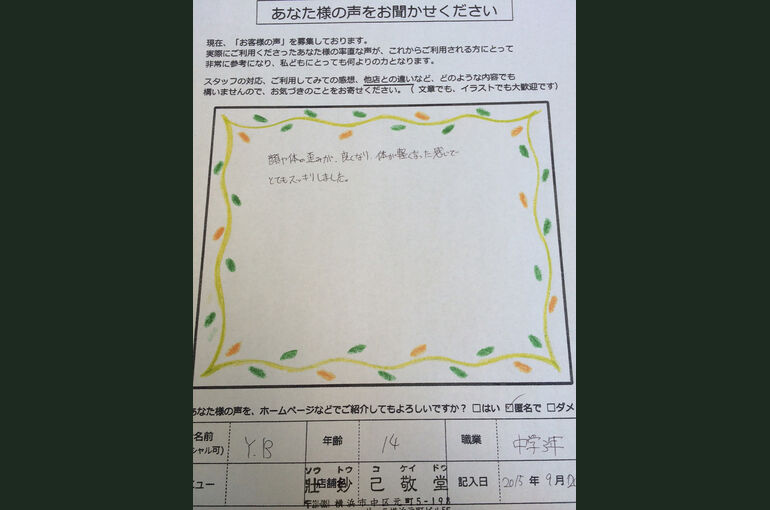 あなた様の声をお聞かせください
現在、「お客様の声」を募集しております。
実際にご利用くださったあなた様の率直な声が、これからご利用される方にとって
非常に参考になり、私どもにとっても何よりの力となります。
スタッフの対応、ご利用してみての感想、他店との違いなど、どのような内容でも
構いませんので、お気づきのことをお寄せください。（文章でも、イラストでも大歓迎です）
顔や体の歪みが、良くなり、体が軽くなった感じで
とてもスッキリしました。
あなた様の声を、ホームページなどでご紹介してもよろしいですか？ □はい ☑匿名で □ダメ
名前 Y.B 年齢 14 職業 中学3年
シャル可)
ソウ トウ コ ケイ ドウ
ュー 店舗名 己敬堂 記入日 2015年 9月
横浜市中区元町5-198